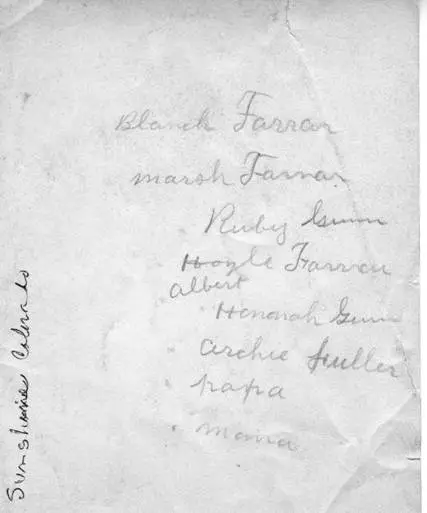 Blanch Farrar
Marsh Farrar
Ruby Gunn
Hoyle Farrar
Albert
Henorah Gunn
Archie Fuller
papa
mama
Sunshine Colorado